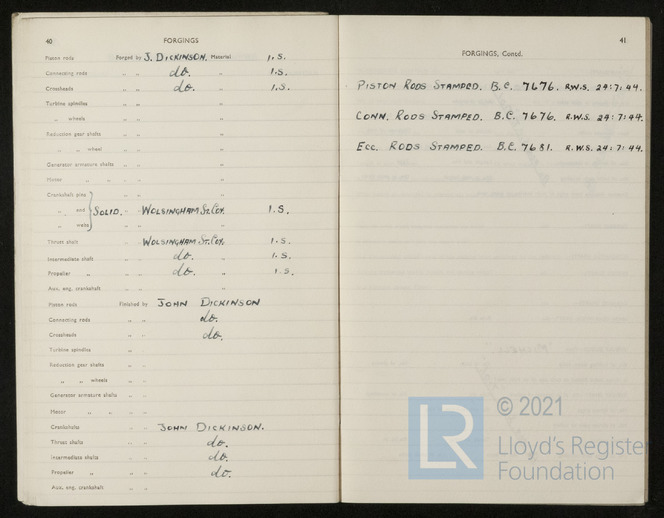 40
FORGINGS
Piston rods Forged by J. DICKINSON. Material I.S.
Connecting rods " " do. " I.S.
Crossheads " " do. " I.S.
Turbine spindles " " "
" wheels " " "
Reduction gear shafts " " "
" " wheel " " "
Generator armature shafts " " "
Motor " " " " "
Crankshaft pins
" and SOLID. " " WOLSINGHAM ST. COY. I.S.
" webs
Thrust shaft " " WOLSINGHAM ST. COY. " I.S.
Intermediate shaft " " do. " I.S.
Propeller " " " do. " I.S.
Aux. eng. crankshaft " " "
Piston rods Finished by JOHN DICKINSON
Connecting rods " " do.
Crossheads " " do.
Turbine spindles " "
Reduction gear shafts " "
" " wheels " "
Generator armature shafts " "
Motor " " " "
Crankshafts " " JOHN DICKINSON.
Thrust shafts " " do.
Intermediate shafts " " do.
Propeller " " " do.
Aux. eng. crankshaft " "
41
FORGINGS, Contd.
PISTON RODS STAMPED. B.C. 7676. R.W.S. 24:7:44.
CONN. RODS STAMPED. B.C. 7676. R.W.S. 24:7:44.
ECC. RODS STAMPED. B.C. 7681. R.W.S. 24:7:44.
LR
© 2021
Lloyd's Register
Foundation